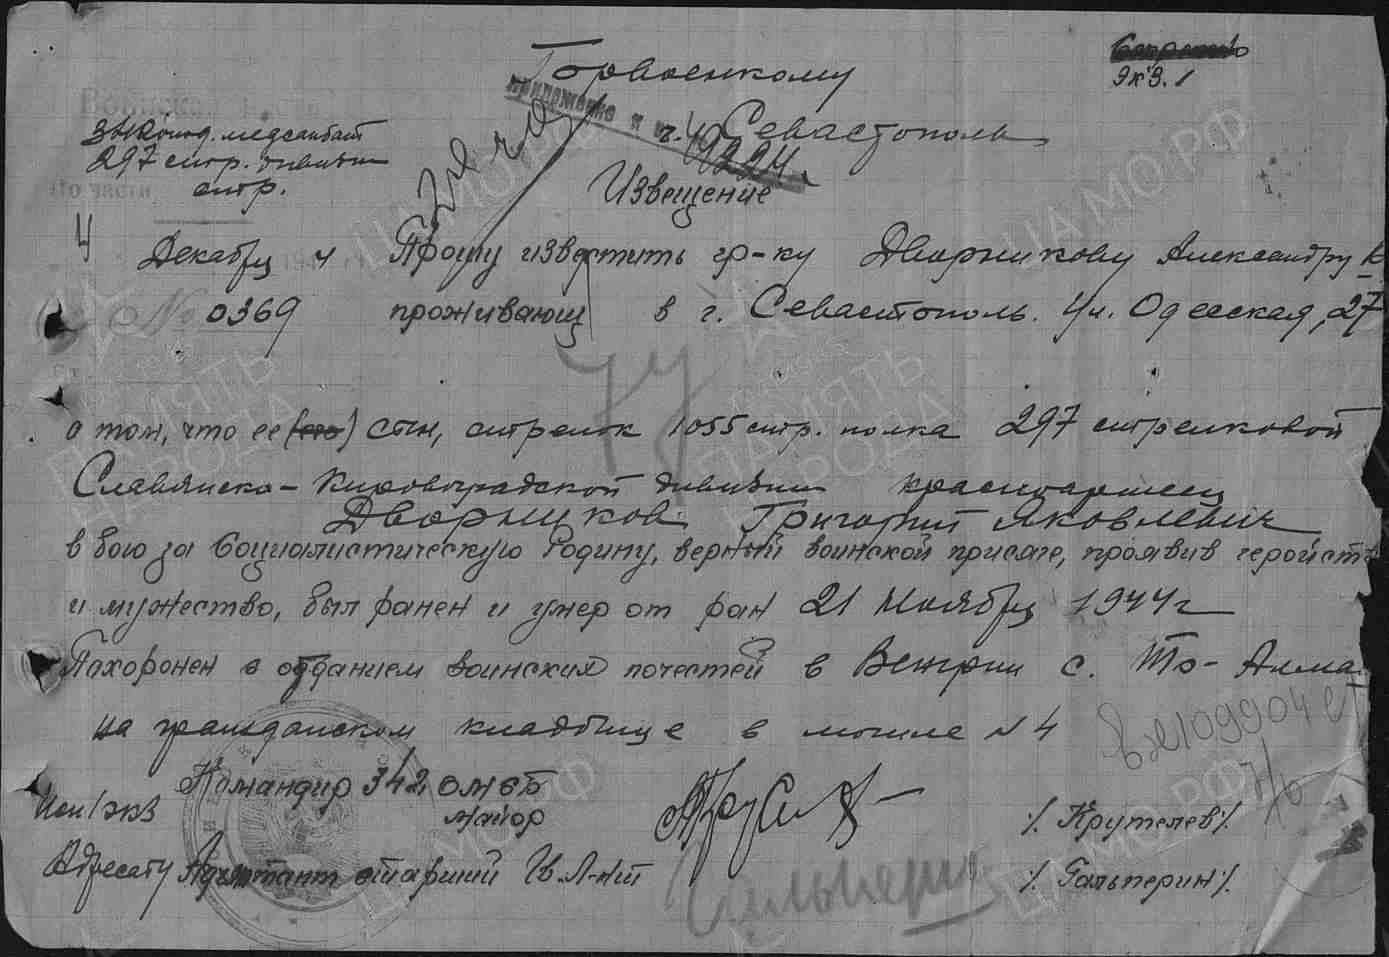 Горвоенкому
Экз. 1
г. Севастополь
342 отд. медсанбат
297 стр. дивизии
стр.
Извещение
4 Декабря Прошу известить гр-ку Дворникову Александру К
№ 0369 проживающ в г. Севастополь. Ул. Одесская, 27
о том, что ее (его) сын, стрелок 1055 стр. полка 297 стрелковой
Славянско-Кировоградской дивизии красноармеец
Дворников Григорий Яковлевич
в бою за Социалистическую Родину, верный воинской присяге, проявив геройств
и мужество, был ранен и умер от ран 21 Ноября 1944 г
Похоронен с отданием воинских почестей в Венгрии с. То-Алма
на гражданском кладбище в могиле N 4
Командир 342 омсб
майор /. Крутелев /.
Адресату Адъютант старший Гв. Л-нт /. Гальперин /.
Гальперин
ПАМЯТЬ НАРОДА
ЦАМО РФ